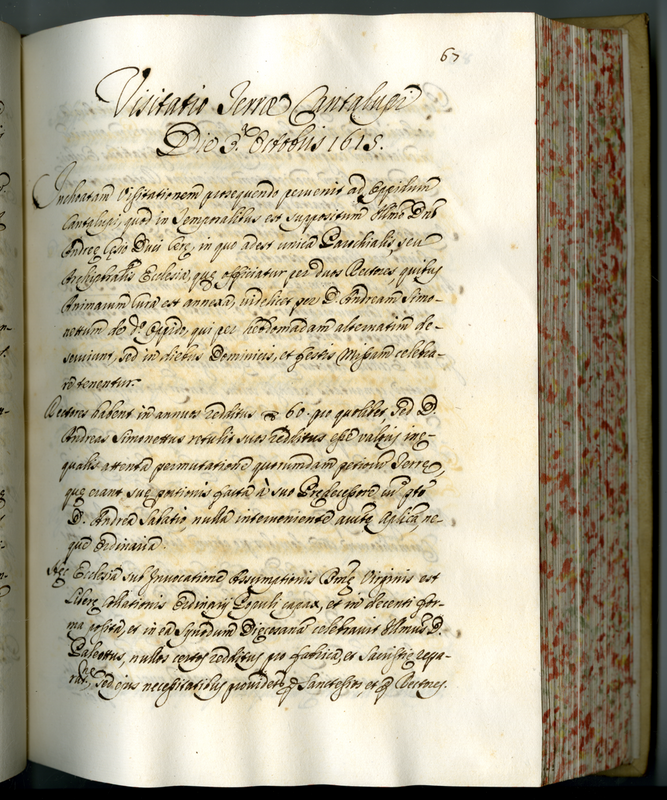 67
Visitatio Terræ Cantalupi
Die 3.ª Octobris 1615.
Inchoatam Visitationem prosequendo pervenit ad Oppidum
Cantalupi, quod in Temporalibus est suppositum Illmo Dno
Andreę Cęsio Duci Cere, in quo adest unica Parochialis, seu
Archipbralis Ecclesia, quę officiatur per duos Rectores, quibus
Animarum Cura est annexa, videlicet per D. Andream Simo-
nettum ab do Oppido, qui per hebdomadam alternatim de-
serviunt, sed in diebus Dominicis, et festis Missam celebra-
re tenentur.
Rectores habent in annuos redditus 60 pro quolibet sed D.
Andreas Simonettus retulit suos redditus esse valoris inę-
qualis attenta permutatione quorumdam petiorum Terre
quę erant suę portionis facta à suo Predecessore cum pto
D. Andrea Sabatio nulla interveniente aucte Aplica, ne-
que Ordinaria.
Hęc Ecclesia sub Invocatione Assumptionis Bmę Virginis est
Liberę Collationis Ordinarij Populi capax, et in decenti for-
ma posita, et in ea Synodum Diocesanam celebravit Illmus D.
Paleottus, nullos certos redditus pro fabrica, et Sacristię repa-
rat.ne sed eius necessitatibus providetur p Sanctesios, et p Rectores.